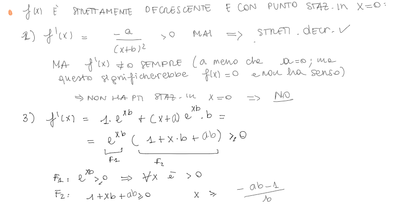 • f(x) È STRETTAMENTE DECRESCENTE E CON PUNTO STAZ. IN X=0:
2) f'(x) = -a / (x+b)² >0 MAI => STRETT. DECR. ✓
MA f'(x) ≠0 SEMPRE (a meno che a=0; ma
questo significherebbe f(x)=0 e non ha senso)
=> NON HA PTI STAZ. IN X=0 => NO
3) f'(x) = 1·e^{xb} + (x+a) e^{xb}·b =
= e^{xb} (1+x·b+ab) ≥0
F1 F2
F1: e^{xb} ≥0 => ∀x è >0
F2: 1+xb+ab≥0 x ≥ (-ab-1)/b